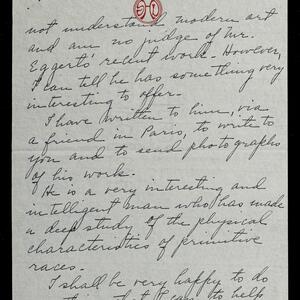 not understand modern art
and am no judge of Mr.
Eggert's recent work. However,
I can tell he has something very
interesting to offer.
I have written to him, via
a friend in Paris, to write to
you and to send photographs
of his work.
He is a very interesting and
intelligent man who has made
a deep study of the physical
characteristics of primitive
races.
I shall be very happy to do